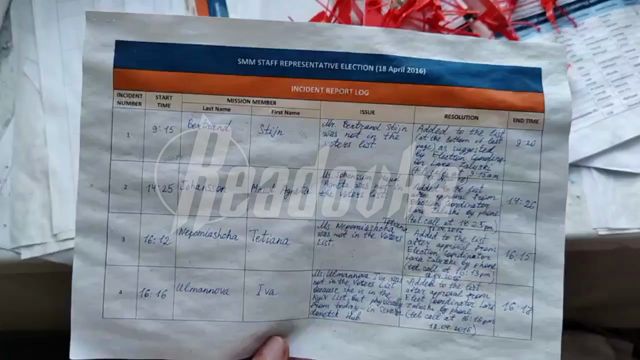 Readovka
SMM STAFF REPRESENTATIVE ELECTION (18 April 2016)
INCIDENT REPORT LOG
INCIDENT NUMBER START TIME MISSION MEMBER ISSUE RESOLUTION END TIME
Last Name First Name
1 9:15 Bertrand Stijn
Mr. Bertrand Stijn
was not in the
voters list
Added to the list
(at the bottom of last
page as suggested
by Election Coordina-
9:20
2 14:25 Johansson
was not in
the Voters list
Added to the list
after approval from
Election Coordinator
by phone
(tel call at 14:25pm
14:26
3 16:12 Nepomiashcha Tetiana
Ms. Nepomiashcha Tetiana
was not in the Voters
list.
Added to the list
after approval from
Election Coordinator
by phone
16:15
4 16:16 Ulmannova Iva
Ms. Ulmannova Iva was
not in the Voters list
because she is in the
Kyiv list but physically
from today in
Hub
Added to the list
after approval from
Elect Coordinator
by phone
(tel call at 16:16pm
18.04.2016)
16:18